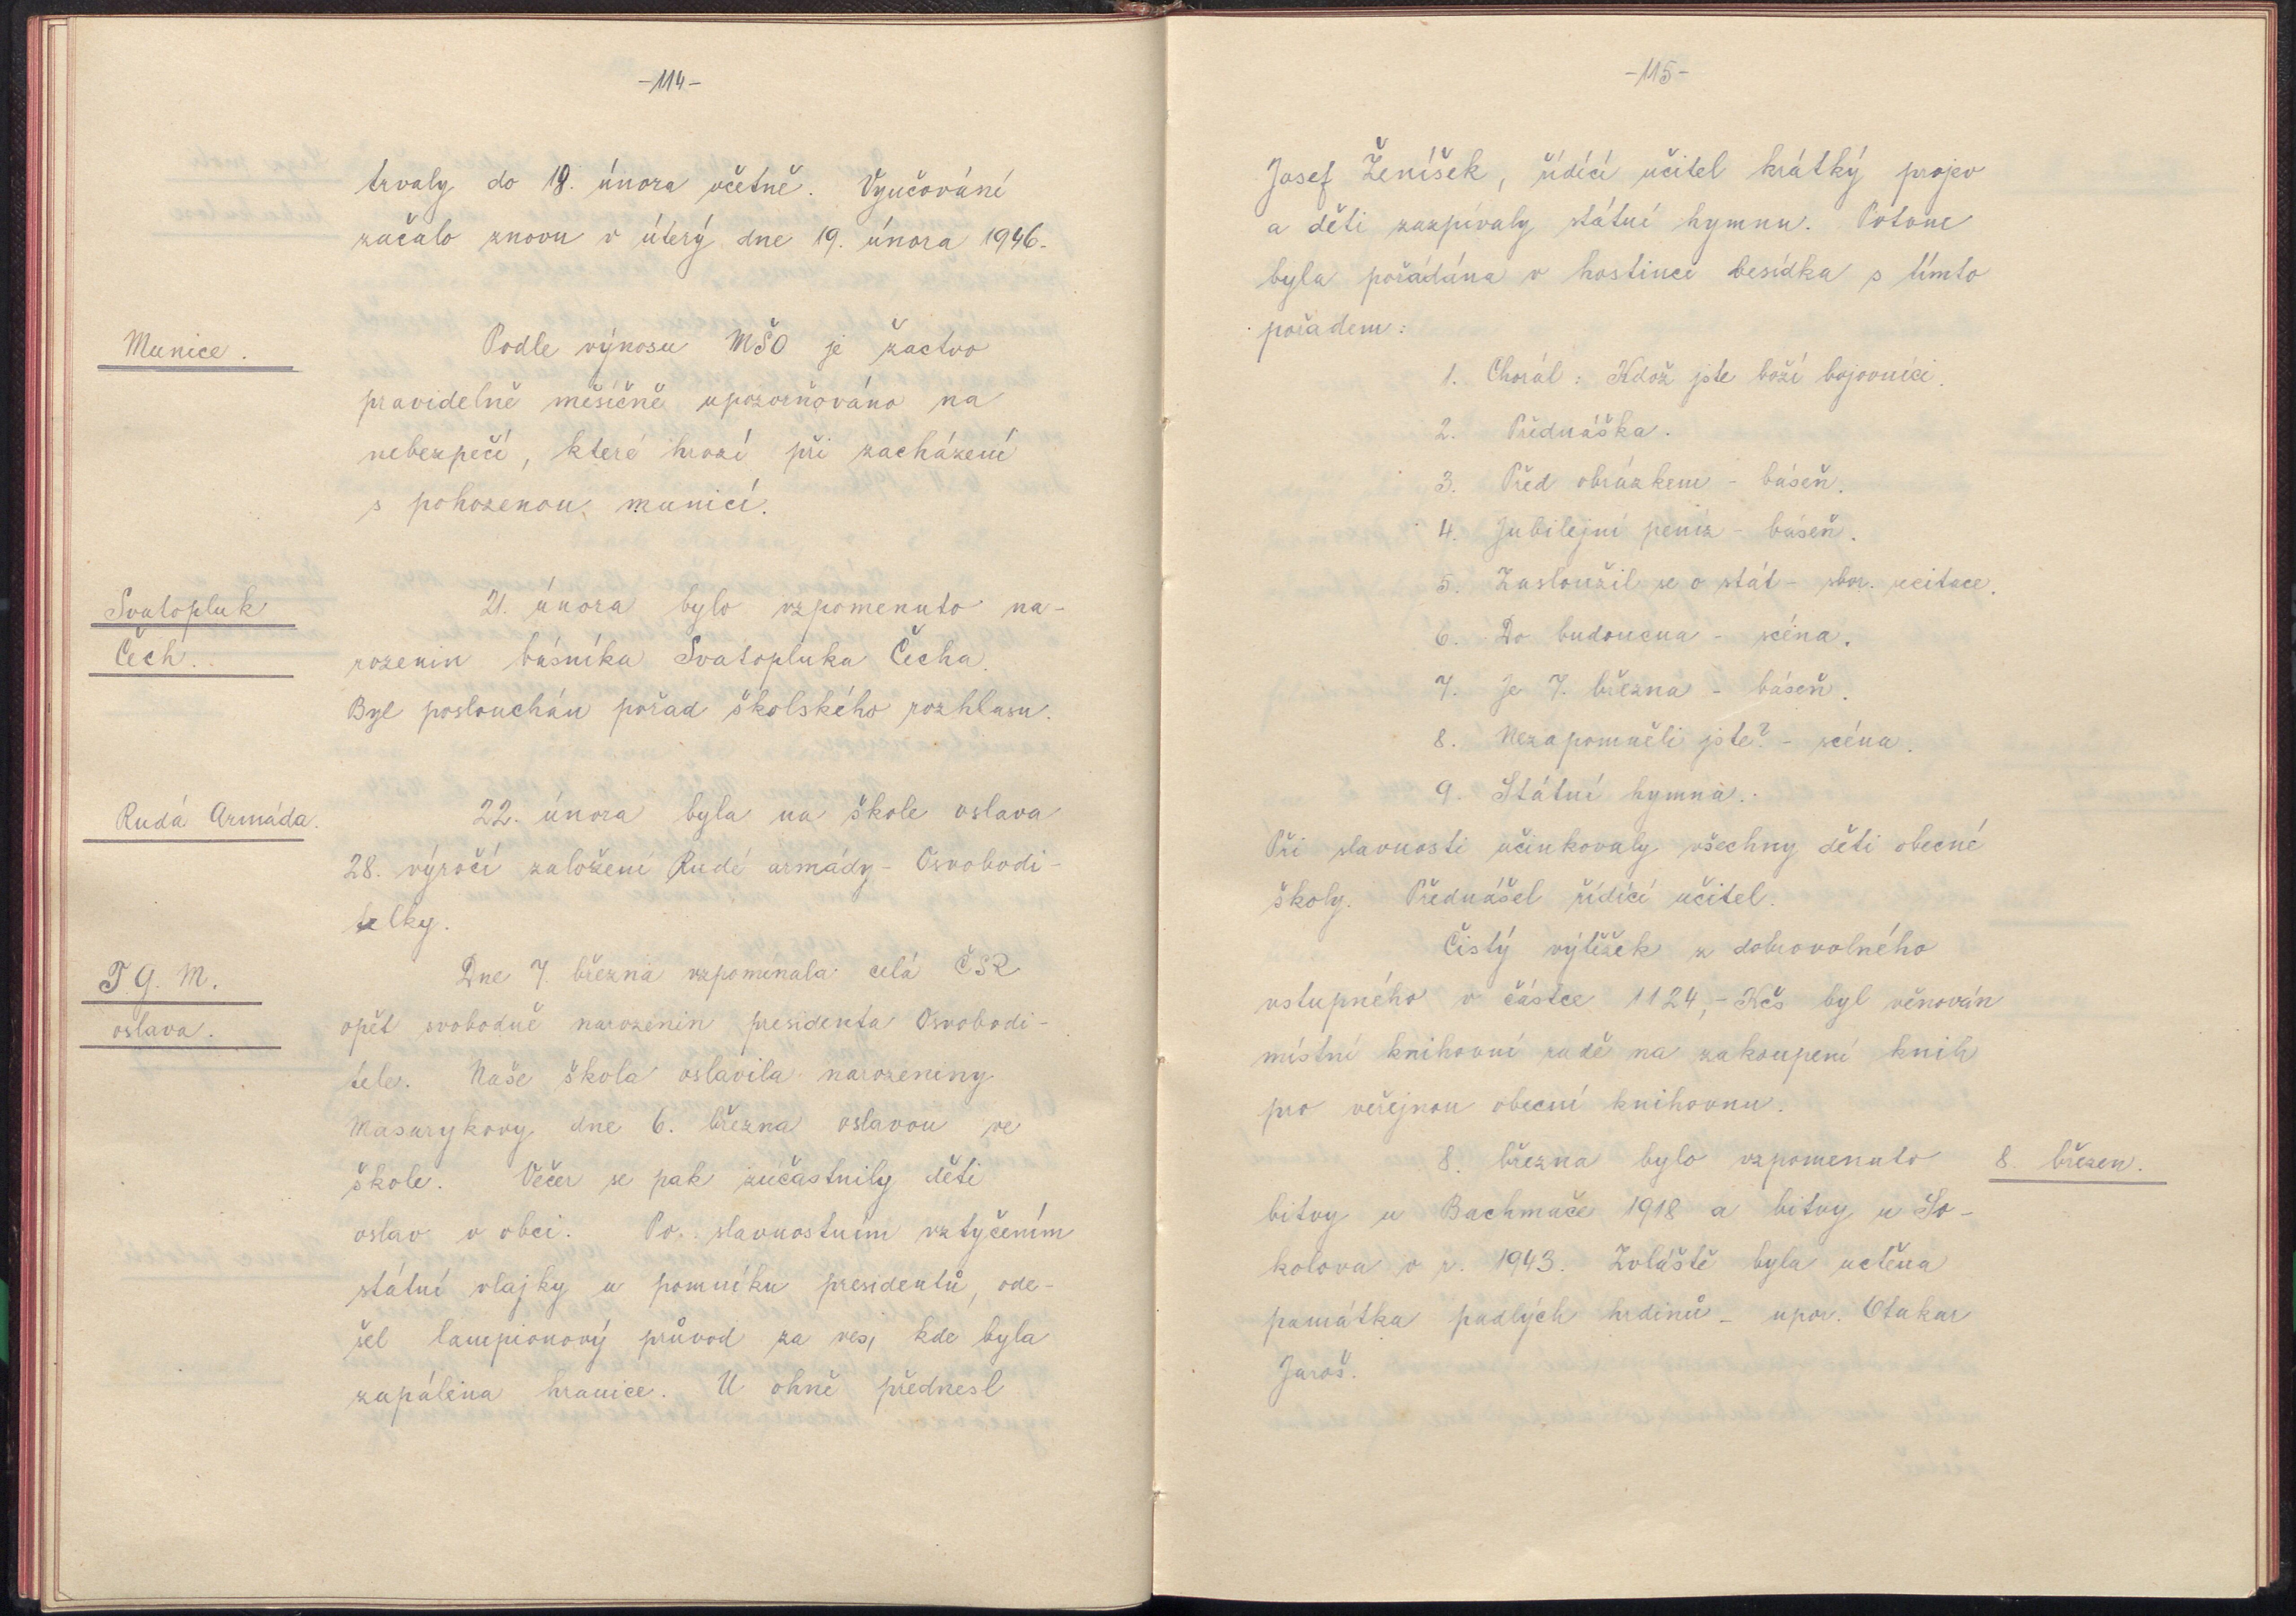 -114-
trvaly do 18. února včetně. Vyučování
začalo znovu v úterý dne 19. února 1946.
Munice.
Podle výnosu MŠO je žactvo
pravidelně měsíčně upozorňováno na
nebezpečí, které hrozí při zacházení
s pohozenou municí.
Svatopluk
Čech.
21. února bylo vzpomenuto na-
rozenin básníka Svatopluka Čecha.
Byl poslouchán pořad školského rozhlasu.
Rudá Armáda.
22. února byla na škole oslava
28. výročí založení Rudé armády - Osvobodi-
telky.
T. G. M.
oslava.
Dne 7. března vzpomínala celá ČSR
opět svobodně narozenin presidenta Osvobodi-
tele. Naše škola oslavila narozeniny
Masarykovy dne 6. března oslavou ve
škole. Večer se pak zúčastnily děti
oslav v obci. Po slavnostním vztyčením
státní vlajky u pomníku presidentů, ode-
šel lampionový průvod za ves, kde byla
zapálena hranice. U ohně přednesl
-115-
Josef Ženíšek, řídící učitel krátký projev
a děti zazpívaly státní hymnu. Potom
byla pořádána v hostinci besídka s tímto
pořadem:
1. Chorál: Kdož jste boží bojovníci.
2. Přednáška.
3. Před obrázkem - báseň.
4. Jubilejní peníz - báseň.
5. Zasloužil se o stát - sbor. recitace.
6. Do budoucna - scéna.
7. Je 7. března - báseň.
8. Nezapomněli jste? - scéna.
9. Státní hymna.
Při slavnosti účinkovaly všechny děti obecné
školy. Přednášel řídící učitel.
Čistý výtěžek z dobrovolného
vstupného v částce 1124,- Kčs byl věnován
místní knihovní radě na zakoupení knih
pro veřejnou obecní knihovnu.
8. března bylo vzpomenuto
8. březen.
bitvy u Bachmače 1918 a bitvy u So-
kolova v r. 1943. Zvláště byla uctěna
památka padlých hrdinů - npor. Otakar
Jaroš.